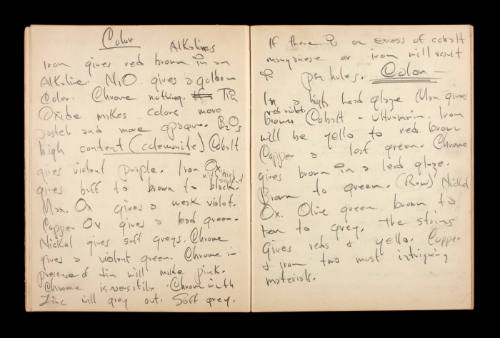 Color
Alkalines
Iron gives red brown in an
Alkaline N2O gives a golbrn
Color. Chrome nothing. Tin
Oxide makes colors more
pastels and more opaque. B2O3
high content (colemanite) Cobalt
gives violent purple. Iron Ox.
gives buff to brown to black.
Man. Ox gives a weak violet.
Copper Ox gives a lead green.
Nickal gives soft greys. Chrome
gives a violent green. Chrome in
presence of tin will make pink.
Chrome is versitile. Chrome with
Zinc will grey out. Soft grey.
If there is an excess of cobalt
manganese or iron will result
pin holes. Color –
In a high lead glaze Man. gives
brown Cobalt - ultramarin. Iron
will be yello to red brown
Copper a leaf green. Chrome
gives brown in a lead glaze.
Brown to green. (Raw) Nickel
Ox. Olive green brown to
tan to grey. the strings
Gives reds & yello. Copper
& iron two most intriguing
materials.